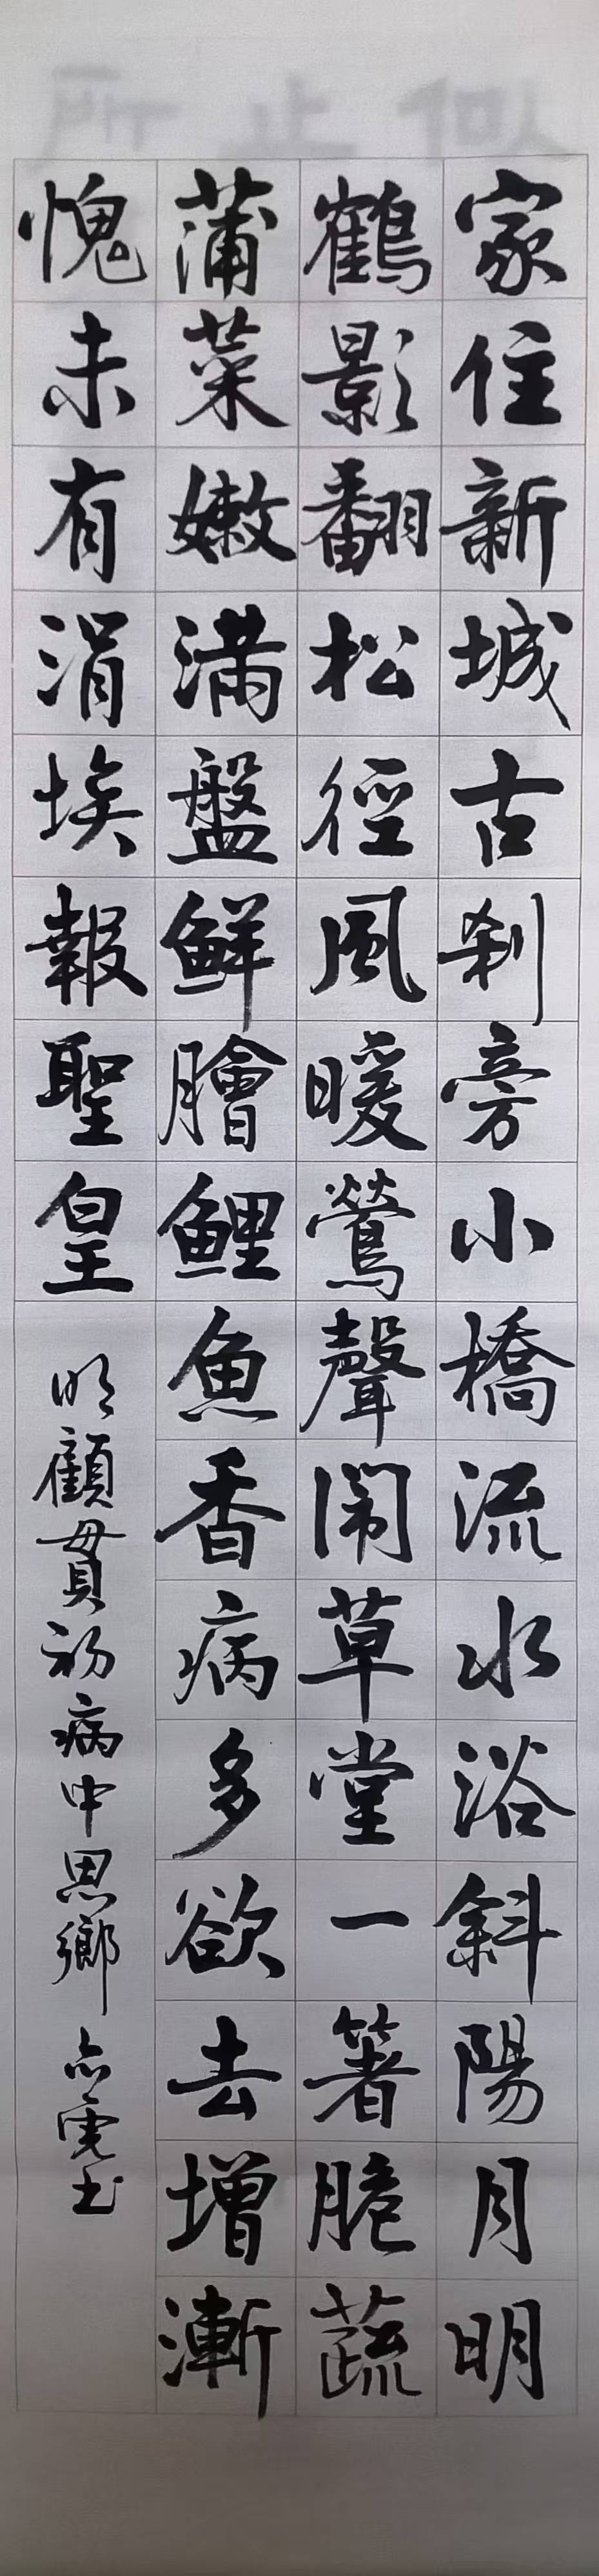 家住新城古刹旁小橋流水浴斜陽月明
鶴影翻松徑風暖鶯聲闹草堂一箸脆蔬
蒲菜嫩满盤鲜膾鲤魚香病多欲去增漸
愧未有涓埃報聖皇
明顧貫初病中思鄉 亦虎书